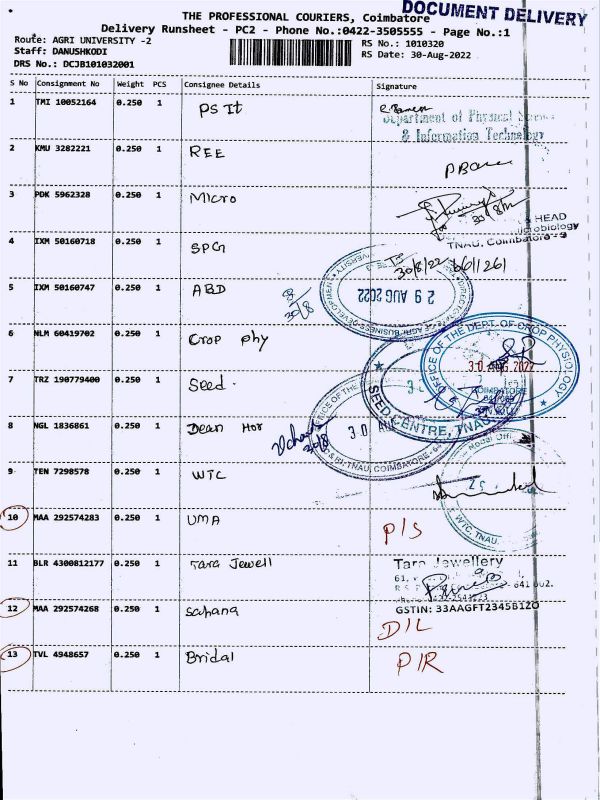 DOCUMENT DELIVERY
THE PROFESSIONAL COURIERS, Coimbatore
Delivery Runsheet - PC2 - Phone No.:0422-3505555 - Page No.:1
Route: AGRI UNIVERSITY -2
RS No.: 1010320
Staff: DANUSHKODI
RS Date: 30-Aug-2022
DRS No.: DCJB101032001
S No Consignment No Weight PCS Consignee Details Signature
1 TMI 10052164 0.250 1 PS It
Department of Physical
& Information Technology
2 KMU 3282221 0.250 1 REE
3 PDK 5962328 0.250 1 Micro 30/8/22
& HEAD
TNAU, Coimbatore - 3
4 IXM 50160718 0.250 1 SPG 30/8/22
5 IXM 50160747 0.250 1 ABD 30/8 29 AUG 2022
6 NLM 60419702 0.250 1 Crop phy
OFFICE OF THE DEPT. OF CROP PHYSIOLOGY
30 AUG 2022
COIMBATORE
7 TRZ 190779400 0.250 1 Seed.
SEED CENTRE, TNAU
8 NGL 1836861 0.250 1 Dean Hor 30/8 30 AUG
9 TEN 7298578 0.250 1 WTC
Nodal Offi
WTC, TNAU.
10 MAA 292574283 0.250 1 UMA P/S
11 BLR 4300812177 0.250 1 Tara Jewell
Tara Jewellery
61,
641 002.
GSTIN: 33AAGFT2345B1ZO
12 MAA 292574268 0.250 1 Sahana D/L
13 TVL 4948657 0.250 1 Bridal P/R